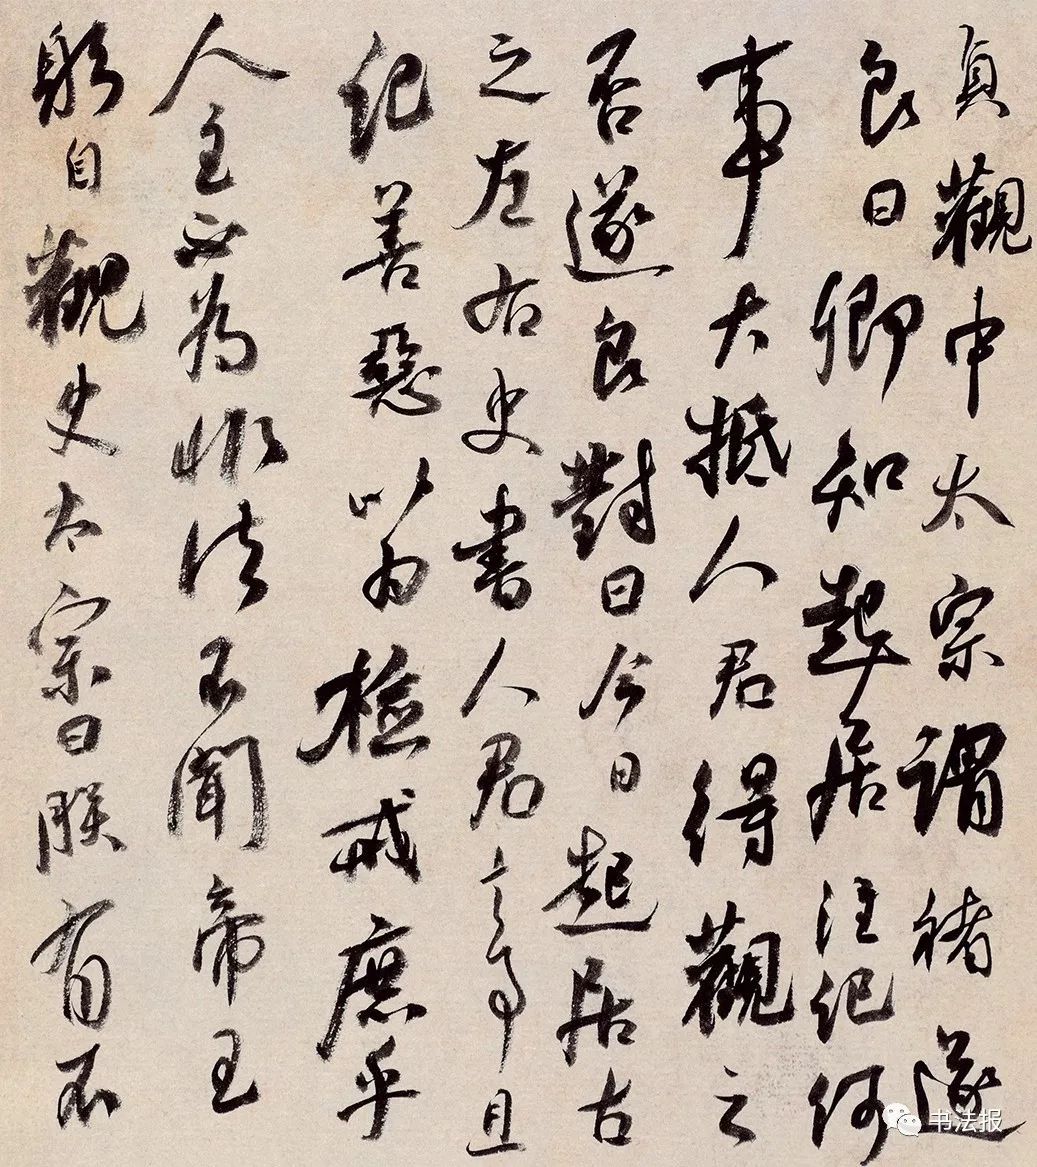 貞觀中太宗謂褚遂
良曰卿知起居注纪何
事大抵人君得觀之
否遂良對曰今日起居古
之左右史書人君言事且
纪善惡以为檢戒庶乎
人主不为非法不聞帝王
躬自觀史太宗曰朕有不
书法报